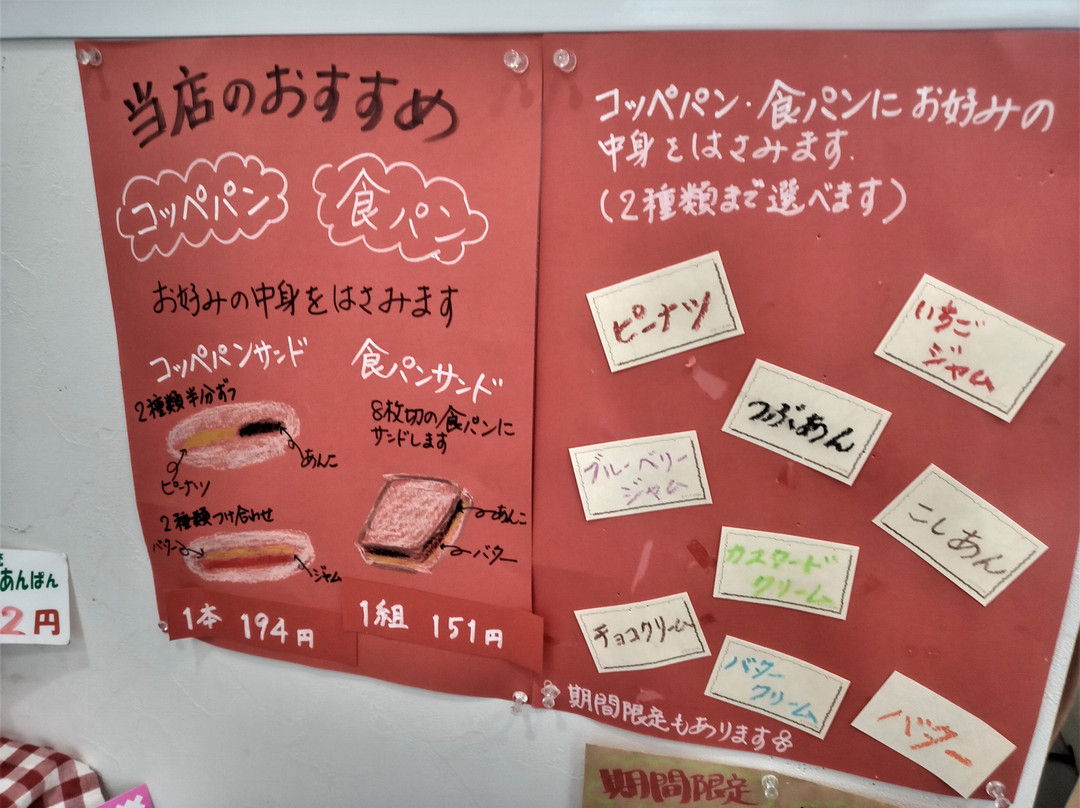 当店のおすすめ
コッペパン
食パン
お好みの中身をはさみます
コッペパンサンド
2種類半分ずつ
ピーナツ
あんこ
2種類つけ合わせ
バター
ジャム
1本 194円
食パンサンド
8枚切の食パンに
サンドします
あんこ
バター
1組 151円
コッペパン・食パンにお好みの
中身をはさみます.
(2種類まで選べます)
ピーナツ
いちご
ジャム
つぶあん
ブルーベリー
ジャム
こしあん
カスタード
クリーム
チョコクリーム
バター
クリーム
バター
期間限定もあります
期間限定
あんぱん
2円